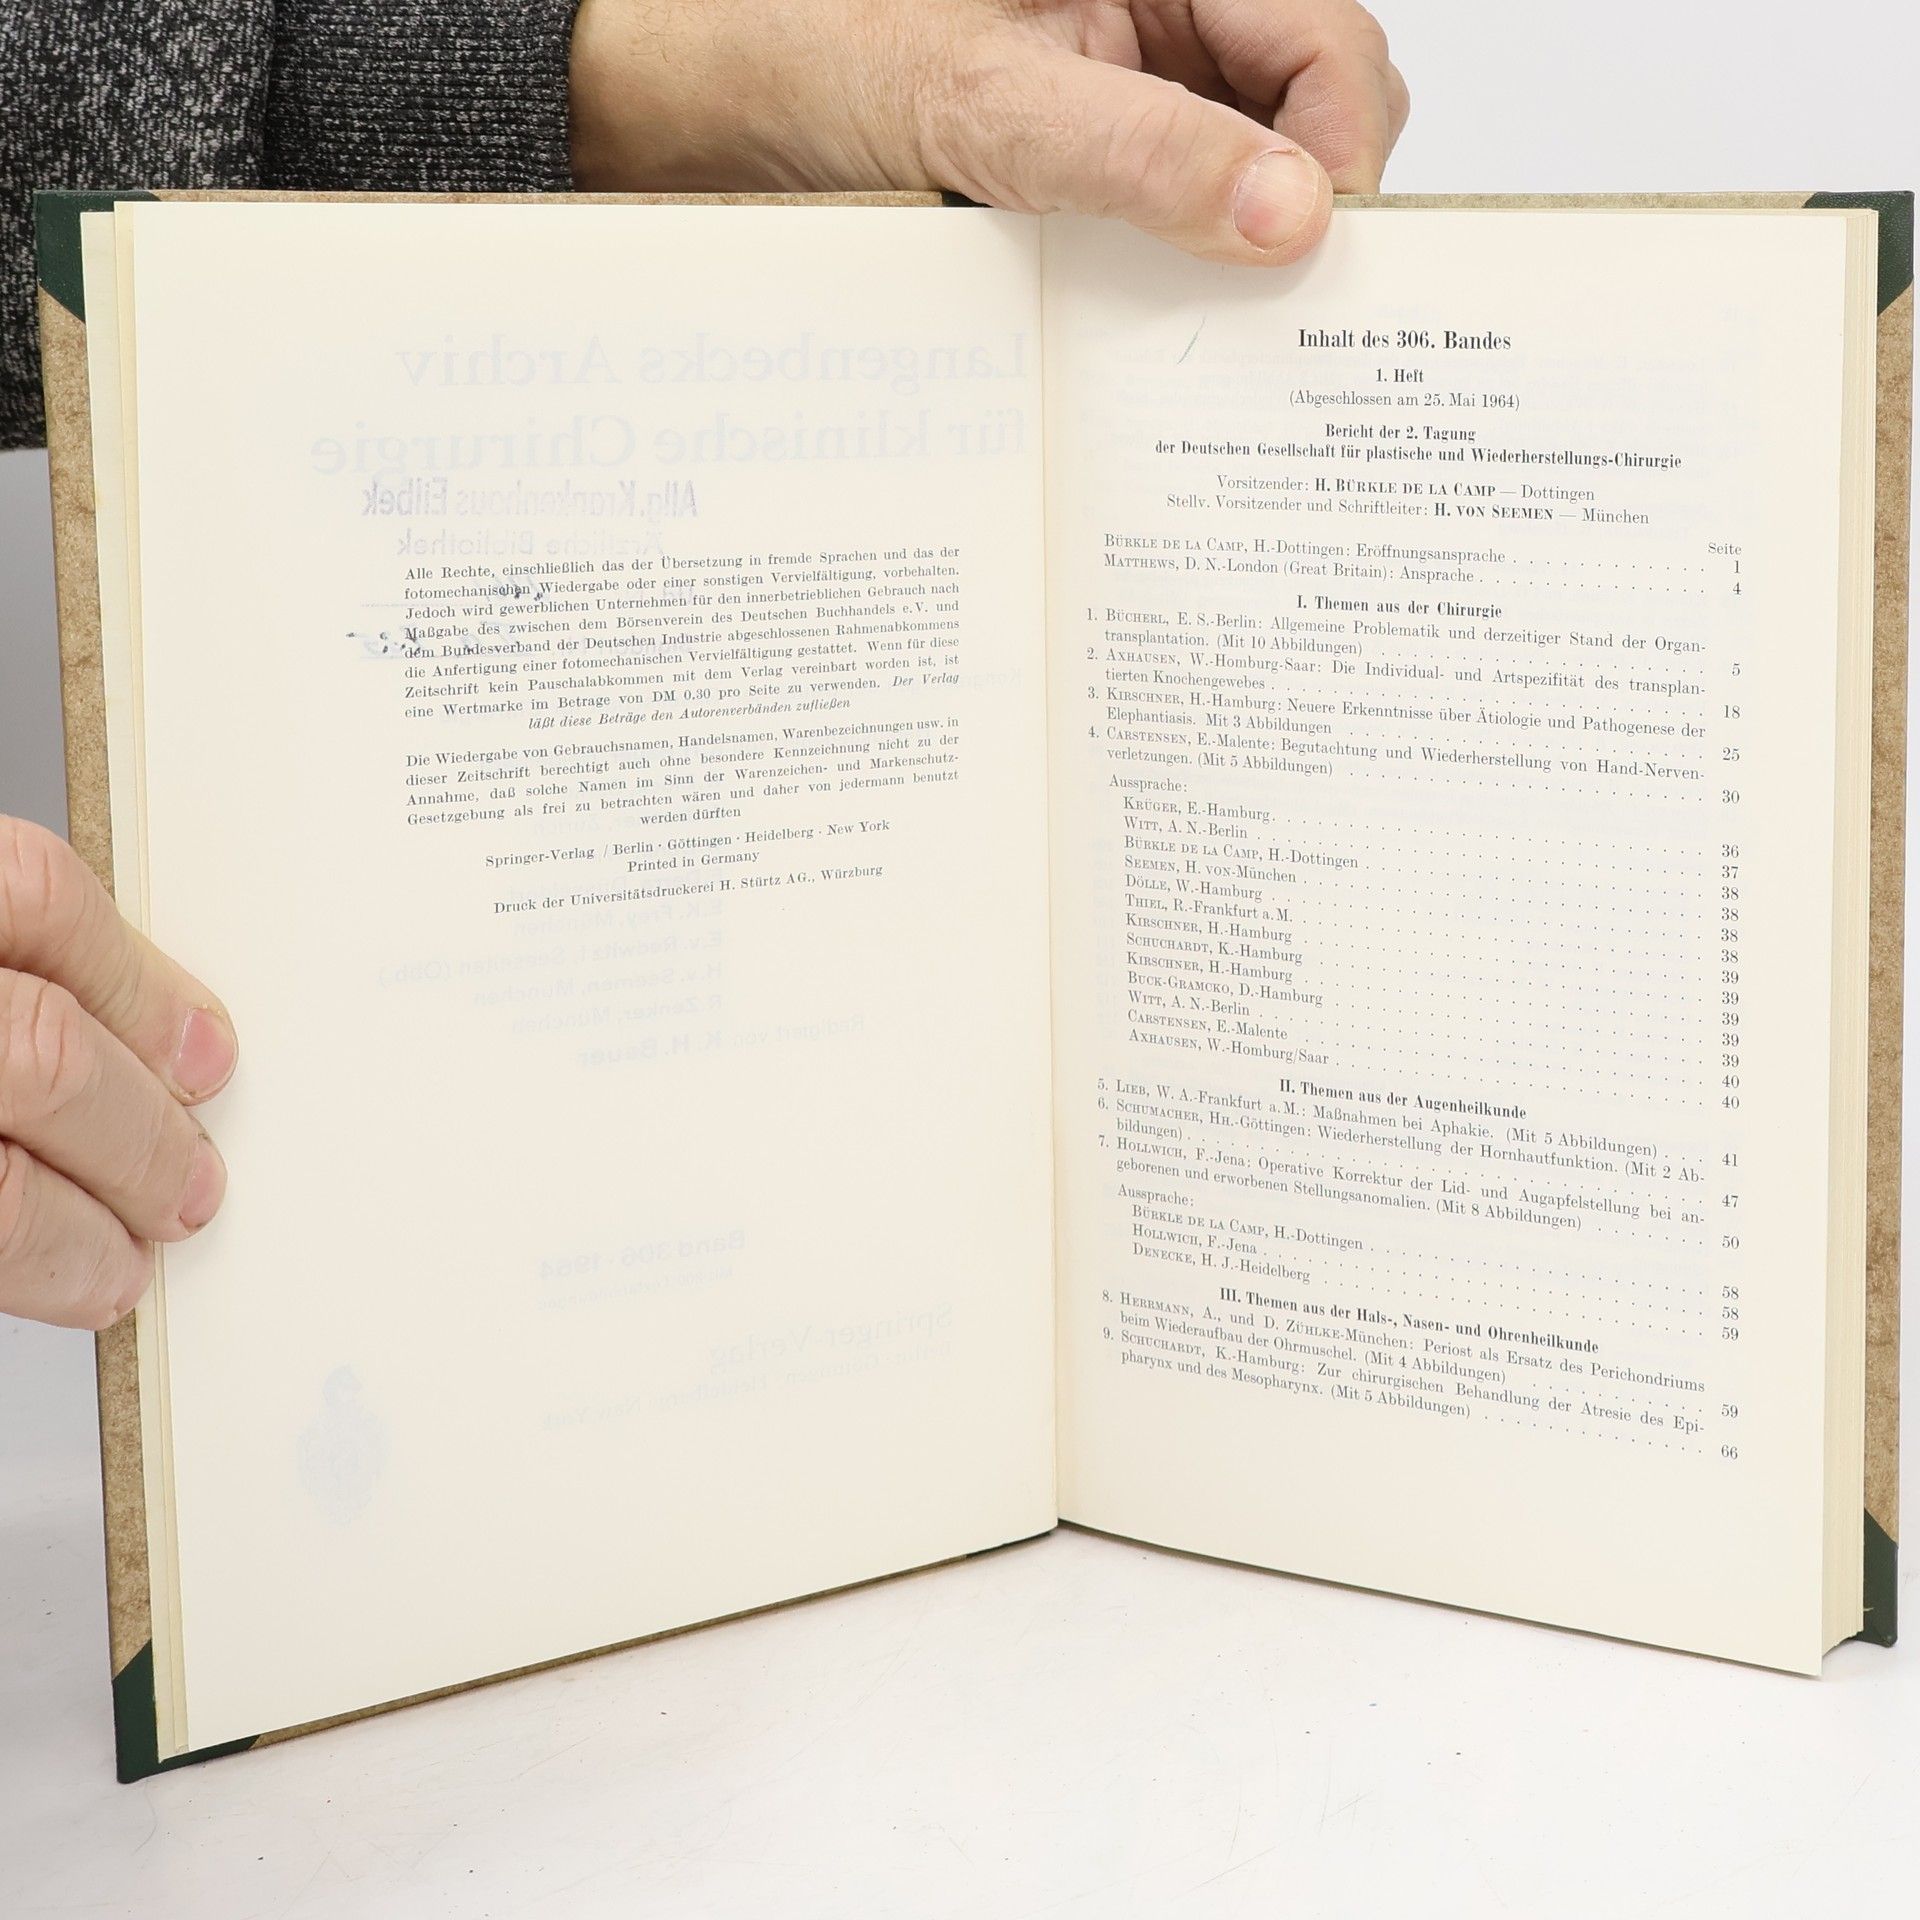 Alle Rechte, einschließlich das der Übersetzung in fremde Sprachen und das der
fotomechanischen Wiedergabe oder einer sonstigen Vervielfältigung, vorbehalten.
Jedoch wird gewerblichen Unternehmen für den innerbetrieblichen Gebrauch nach
Maßgabe des zwischen dem Börsenverein des Deutschen Buchhandels e. V. und
dem Bundesverband der Deutschen Industrie abgeschlossenen Rahmenabkommens
die Anfertigung einer fotomechanischen Vervielfältigung gestattet. Wenn für diese
Zeitschrift kein Pauschalabkommen mit dem Verlag vereinbart worden ist, ist
eine Wertmarke im Betrage von DM 0.30 pro Seite zu verwenden. Der Verlag
läßt diese Beträge den Autorenverbänden zufließen
Die Wiedergabe von Gebrauchsnamen, Handelsnamen, Warenbezeichnungen usw. in
dieser Zeitschrift berechtigt auch ohne besondere Kennzeichnung nicht zu der
Annahme, daß solche Namen im Sinn der Warenzeichen- und Markenschutz-
Gesetzgebung als frei zu betrachten wären und daher von jedermann benutzt
werden dürften
Springer-Verlag / Berlin · Göttingen · Heidelberg · New York
Printed in Germany
Druck der Universitätsdruckerei H. Stürtz AG., Würzburg
Inhalt des 306. Bandes
1. Heft
(Abgeschlossen am 25. Mai 1964)
Bericht der 2. Tagung
der Deutschen Gesellschaft für plastische und Wiederherstellungs-Chirurgie
Vorsitzender: H. BÜRKLE DE LA CAMP — Dottingen
Stellv. Vorsitzender und Schriftleiter: H. VON SEEMEN — München
Seite
BÜRKLE DE LA CAMP, H.-Dottingen: Eröffnungsansprache . . . . . . . . . . . 1
MATTHEWS, D. N.-London (Great Britain): Ansprache . . . . . . . . . . . . . 4
I. Themen aus der Chirurgie
1. BÜCHERL, E. S.-Berlin: Allgemeine Problematik und derzeitiger Stand der Organ-
transplantation. (Mit 10 Abbildungen) . . . . . . . . . . . . . . . . . 5
2. AXHAUSEN, W.-Homburg-Saar: Die Individual- und Artspezifität des transplan-
tierten Knochengewebes . . . . . . . . . . . . . . . . . . . . . . 18
3. KIRSCHNER, H.-Hamburg: Neuere Erkenntnisse über Ätiologie und Pathogenese der
Elephantiasis. Mit 3 Abbildungen . . . . . . . . . . . . . . . . . . 25
4. CARSTENSEN, E.-Malente: Begutachtung und Wiederherstellung von Hand-Nerven-
verletzungen. (Mit 5 Abbildungen) . . . . . . . . . . . . . . . . . . 30
Aussprache:
KRÜGER, E.-Hamburg . . . . . . . . . . . . . . . . . . . . . . 36
WITT, A. N.-Berlin . . . . . . . . . . . . . . . . . . . . . . . 37
BÜRKLE DE LA CAMP, H.-Dottingen . . . . . . . . . . . . . . . . . 38
SEEMEN, H. VON-München . . . . . . . . . . . . . . . . . . . . 38
DÖLLE, W.-Hamburg . . . . . . . . . . . . . . . . . . . . . . 38
THIEL, R.-Frankfurt a. M. . . . . . . . . . . . . . . . . . . . . . 38
KIRSCHNER, H.-Hamburg . . . . . . . . . . . . . . . . . . . . 39
SCHUCHARDT, K.-Hamburg . . . . . . . . . . . . . . . . . . . . 39
KIRSCHNER, H.-Hamburg . . . . . . . . . . . . . . . . . . . . 39
BUCK-GRAMCKO, D.-Hamburg . . . . . . . . . . . . . . . . . . . 39
WITT, A. N.-Berlin . . . . . . . . . . . . . . . . . . . . . . . 39
CARSTENSEN, E.-Malente . . . . . . . . . . . . . . . . . . . . 40
AXHAUSEN, W.-Homburg/Saar . . . . . . . . . . . . . . . . . . . 40
II. Themen aus der Augenheilkunde
5. LIEB, W. A.-Frankfurt a. M.: Maßnahmen bei Aphakie. (Mit 5 Abbildungen) . . . 41
6. SCHUMACHER, HH.-Göttingen: Wiederherstellung der Hornhautfunktion. (Mit 2 Ab-
bildungen) . . . . . . . . . . . . . . . . . . . . . . . . . . . 47
7. HOLLWICH, F.-Jena: Operative Korrektur der Lid- und Augapfelstellung bei an-
geborenen und erworbenen Stellungsanomalien. (Mit 8 Abbildungen) . . . . . . 50
Aussprache:
BÜRKLE DE LA CAMP, H.-Dottingen . . . . . . . . . . . . . . . . . 58
HOLLWICH, F.-Jena . . . . . . . . . . . . . . . . . . . . . . . 58
DENECKE, H. J.-Heidelberg . . . . . . . . . . . . . . . . . . . . 59
III. Themen aus der Hals-, Nasen- und Ohrenheilkunde
8. HERRMANN, A., und D. ZÜHLKE-München: Periost als Ersatz des Perichondriums
beim Wiederaufbau der Ohrmuschel. (Mit 4 Abbildungen) . . . . . . . . . . 59
9. SCHUCHARDT, K.-Hamburg: Zur chirurgischen Behandlung der Atresie des Epi-
pharynx und des Mesopharynx. (Mit 5 Abbildungen) . . . . . . . . . . . . 66